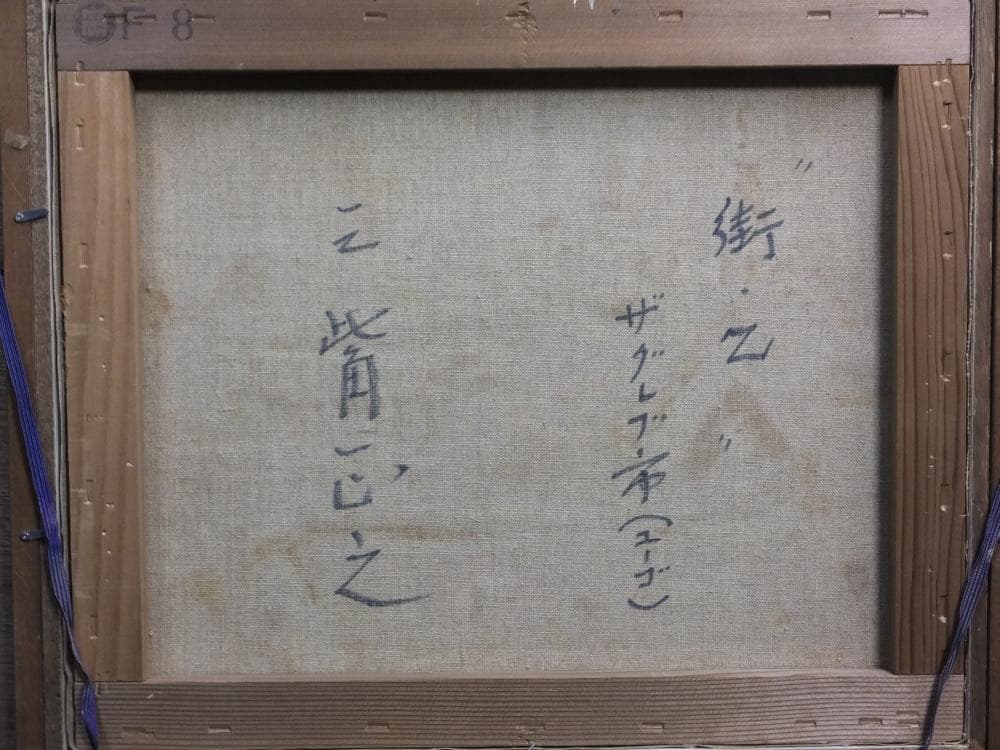 F 8
〝街・Z〟
ザグレブ市(ユーゴ)
三觜正之